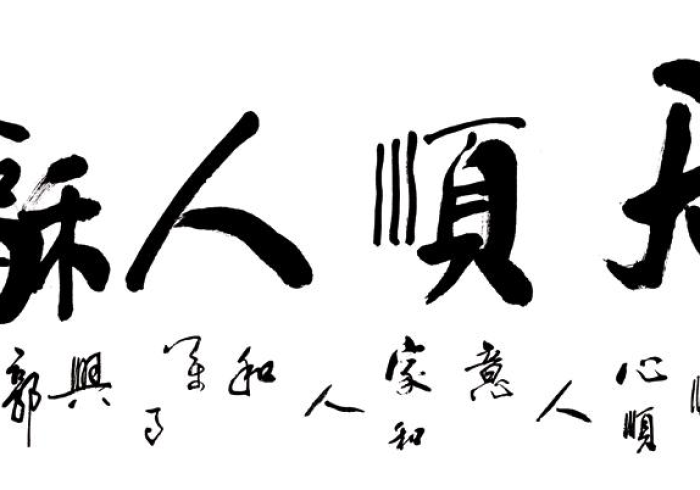 順人龢
心順人意家和人和萬事興郭